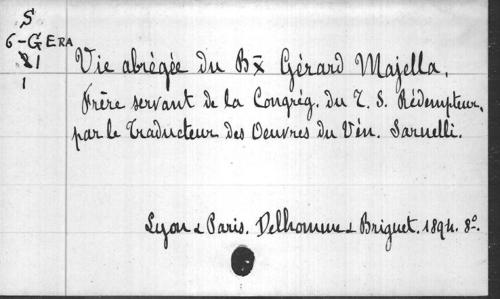 S
6-GERA
21
1
Vie abrégée du Bx Gérard Majella,
Frère servant de la Congrég. du T. S. Rédempteur,
par le Traducteur des Oeuvres du Vén. Sarnelli.
Lyon & Paris. Delhomme & Briguet. 1894. 8º.